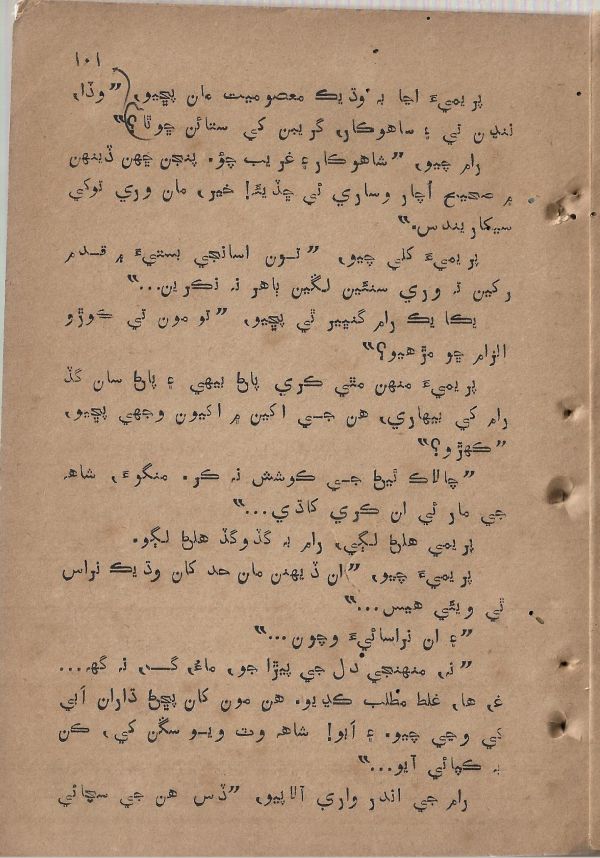 ۱۰۱
پريميءَ اڃا به وڌيڪ معصوميت مان پڇيو، ”وڏا،
ننڍن تي ۽ ساهوڪار، گريبن کي ستائن ڇو ٿا؟“
رام چيو، ”شاهوڪار ۽ غريب چؤ. پنجن ڇهن ڏينهن
۾ صحيح اُچار وساري ئي ڇڏيئه! خير، مان وري توکي
سيکاريندس.“
پريميءَ کلي چيو، ”تون اسانجي بستيءَ ۾ قدم
رکين ته وري سنئين لڱين ٻاهر نه نڪرين...“
يڪا يڪ رام گنڀير ٿي پڇيو، ”تو مون تي ڪوڙو
الزام ڇو مڙهيو؟“
پريميءَ منهن مٿي ڪري پاڻ بيهي ۽ پاڻ سان گڏ
رام کي بيهاري، هن جي اکين ۾ اکيون وجهي پڇيو،
”ڪهڙو؟“
”چالاڪ ٿيڻ جي ڪوشش نه ڪر. منگوءَ، شاهه
جي مار ئي ان ڪري کاڌي...“
پريمي هلڻ لڳي، رام به گڏوگڏ هلڻ لڳو.
پريميءَ چيو، ”ان ڏينهن مان حد کان وڌيڪ نراس
ٿي ويئي هيس...“
”۽ ان نراسائيءَ وچون...“
”نه، منهنجي دل جي پيڙا جو، ماءُ، گ، نه گهه...
غ، ها، غلط مطلب ڪڍيو. هن مون کان پڇڻ ڌاران اَبي
کي وڃي چيو. ۽ اَبو! شاهه وٽ ويو سڱن کي، ڪن
به ڪپائي آيو...“
رام جي اندر واري آلاپيو، ”ڏس هن جي سچائي